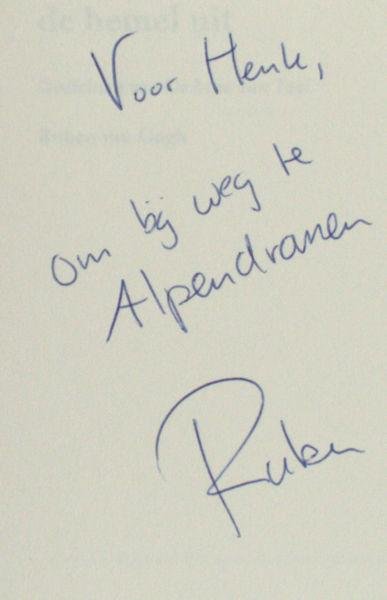 de hemel uit
Voor Henk,
Ruben van Gogh
om bij weg te
Alpendramen
Ruben